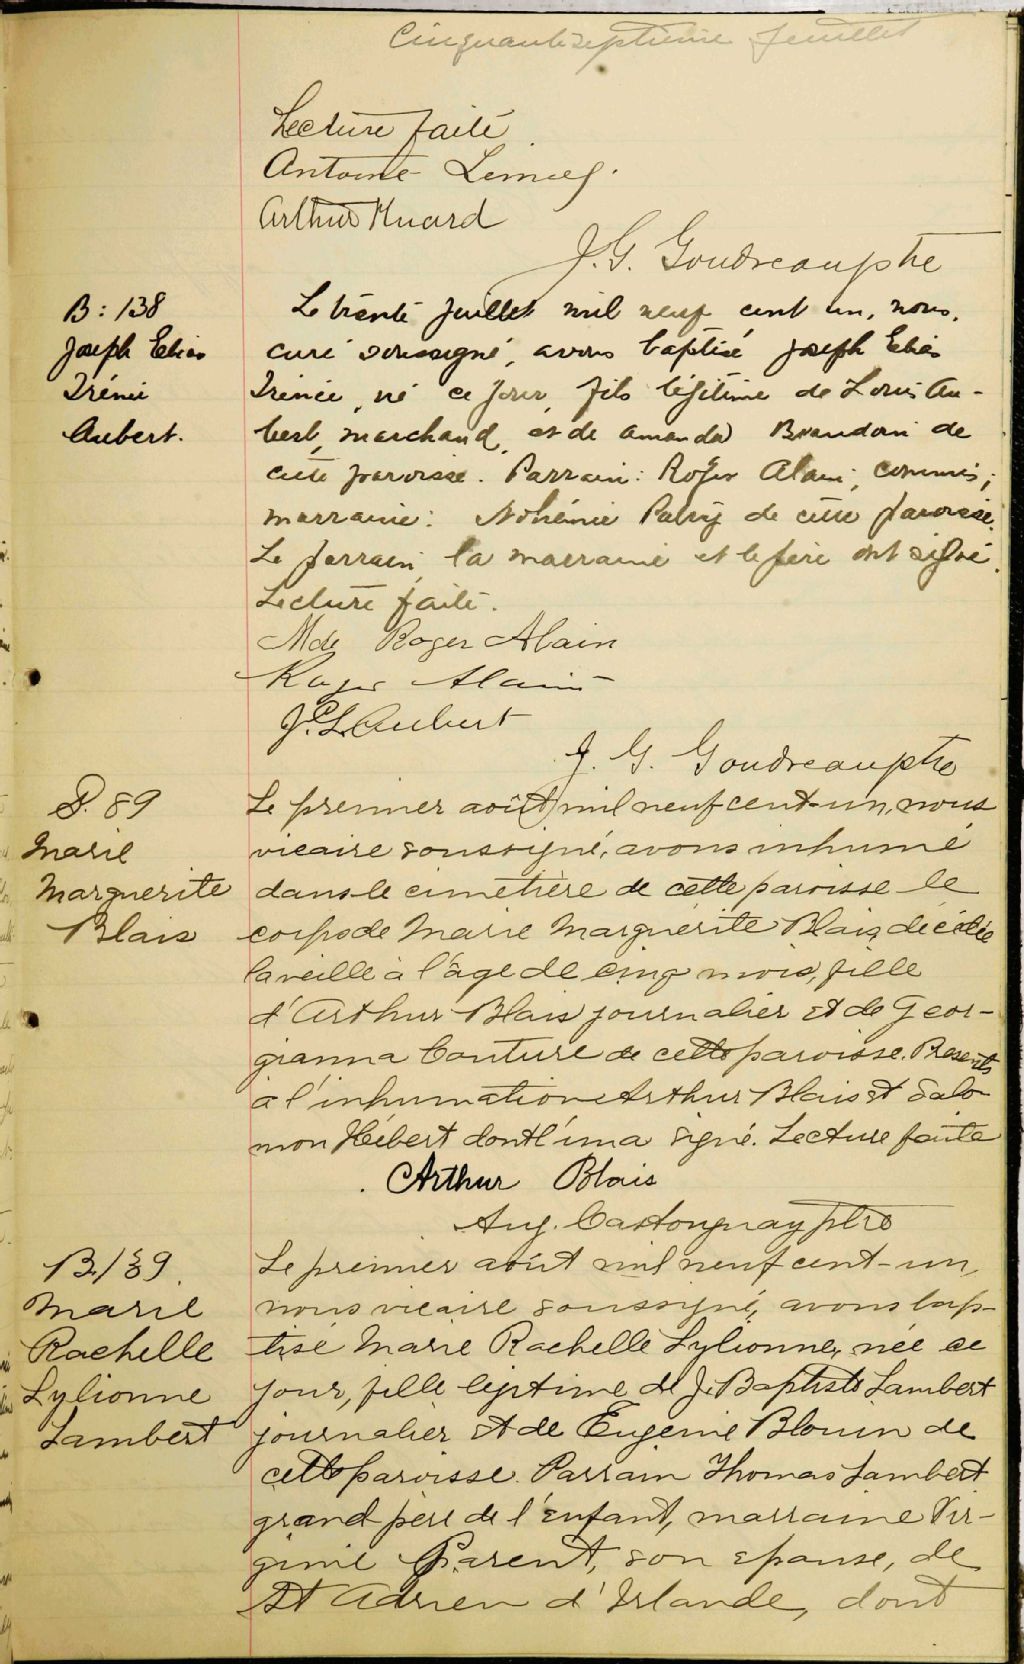 Cinquante septième feuillet
Lecture faite
Antoine
Arthur Huard
J. G. Goudreau ptre
B : 138
Joseph Elias
Irénée
Aubert.
Le trente juillet mil neuf cent un, nous,
curé soussigné, avons baptisé Joseph Elias
Irénée, né ce jour, fils légitime de Louis Au-
bert, marchand, et de Amanda Beaudoin de
cette paroisse. Parrain : Roger Alain, commis;
marraine : Nohémie Patry de cette paroisse.
Le parrain, la marraine et le père ont signé.
Lecture faite.
Mde Roger Alain
Roger Alain
J. L. Aubert
J. G. Goudreau ptre
S. 89
Marie
Marguerite
Blais
Le premier août mil neuf cent-un, nous
vicaire soussigné, avons inhumé
dans le cimetière de cette paroisse le
corps de Marie Marguerite Blais, décédée
la veille à l'âge de cinq mois, fille
d'Arthur Blais journalier et de Geor-
gianna Couture de cette paroisse. Présents
à l'inhumation Arthur Blais et Salo-
mon Hébert dont l'un a signé. Lecture faite
Arthur Blais
Aug. Castonguay ptre
B. 139.
Marie
Rachelle
Lylionne
Lambert
Le premier août mil neuf cent-un,
nous vicaire soussigné, avons bap-
tisé Marie Rachelle Lylionne, née ce
jour, fille légitime de J. Baptiste Lambert
journalier et de Eugénie Blouin de
cette paroisse. Parrain Thomas Lambert
grand père de l'enfant, marraine Vir-
ginie Parent, son épouse, de
St Adrien d'Irlande, dont